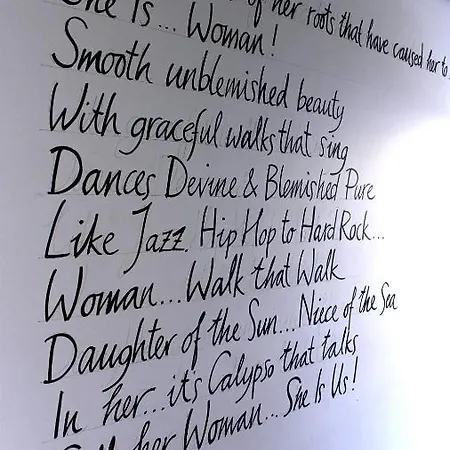 of her roots that have caused her to
She Is... Woman!
Smooth unblemished beauty
With graceful walks that sing
Dances Devine & Blemished Pure
Like Jazz, Hip Hop to Hard Rock...
Woman...Walk that Walk
Daughter of the Sun...Niece of the Sea
In her...it's Calypso that talks
her Woman... She Is Us!